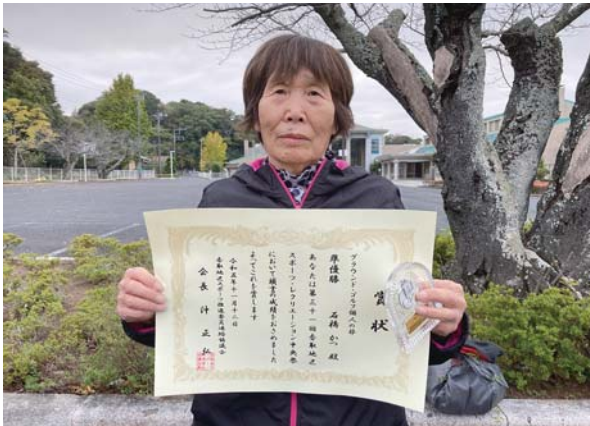 賞状
グラウンド・ゴルフ個人の部
準優勝 石橋かつ殿
あなたは第三十一回香取地区
スポーツ・レクリエーション中央祭
において頭書の成績をおさめました
よってこれを賞します
令和五年十一月十二日
香取地区スポーツ推進委員連絡協議会
会長 汁 正弘